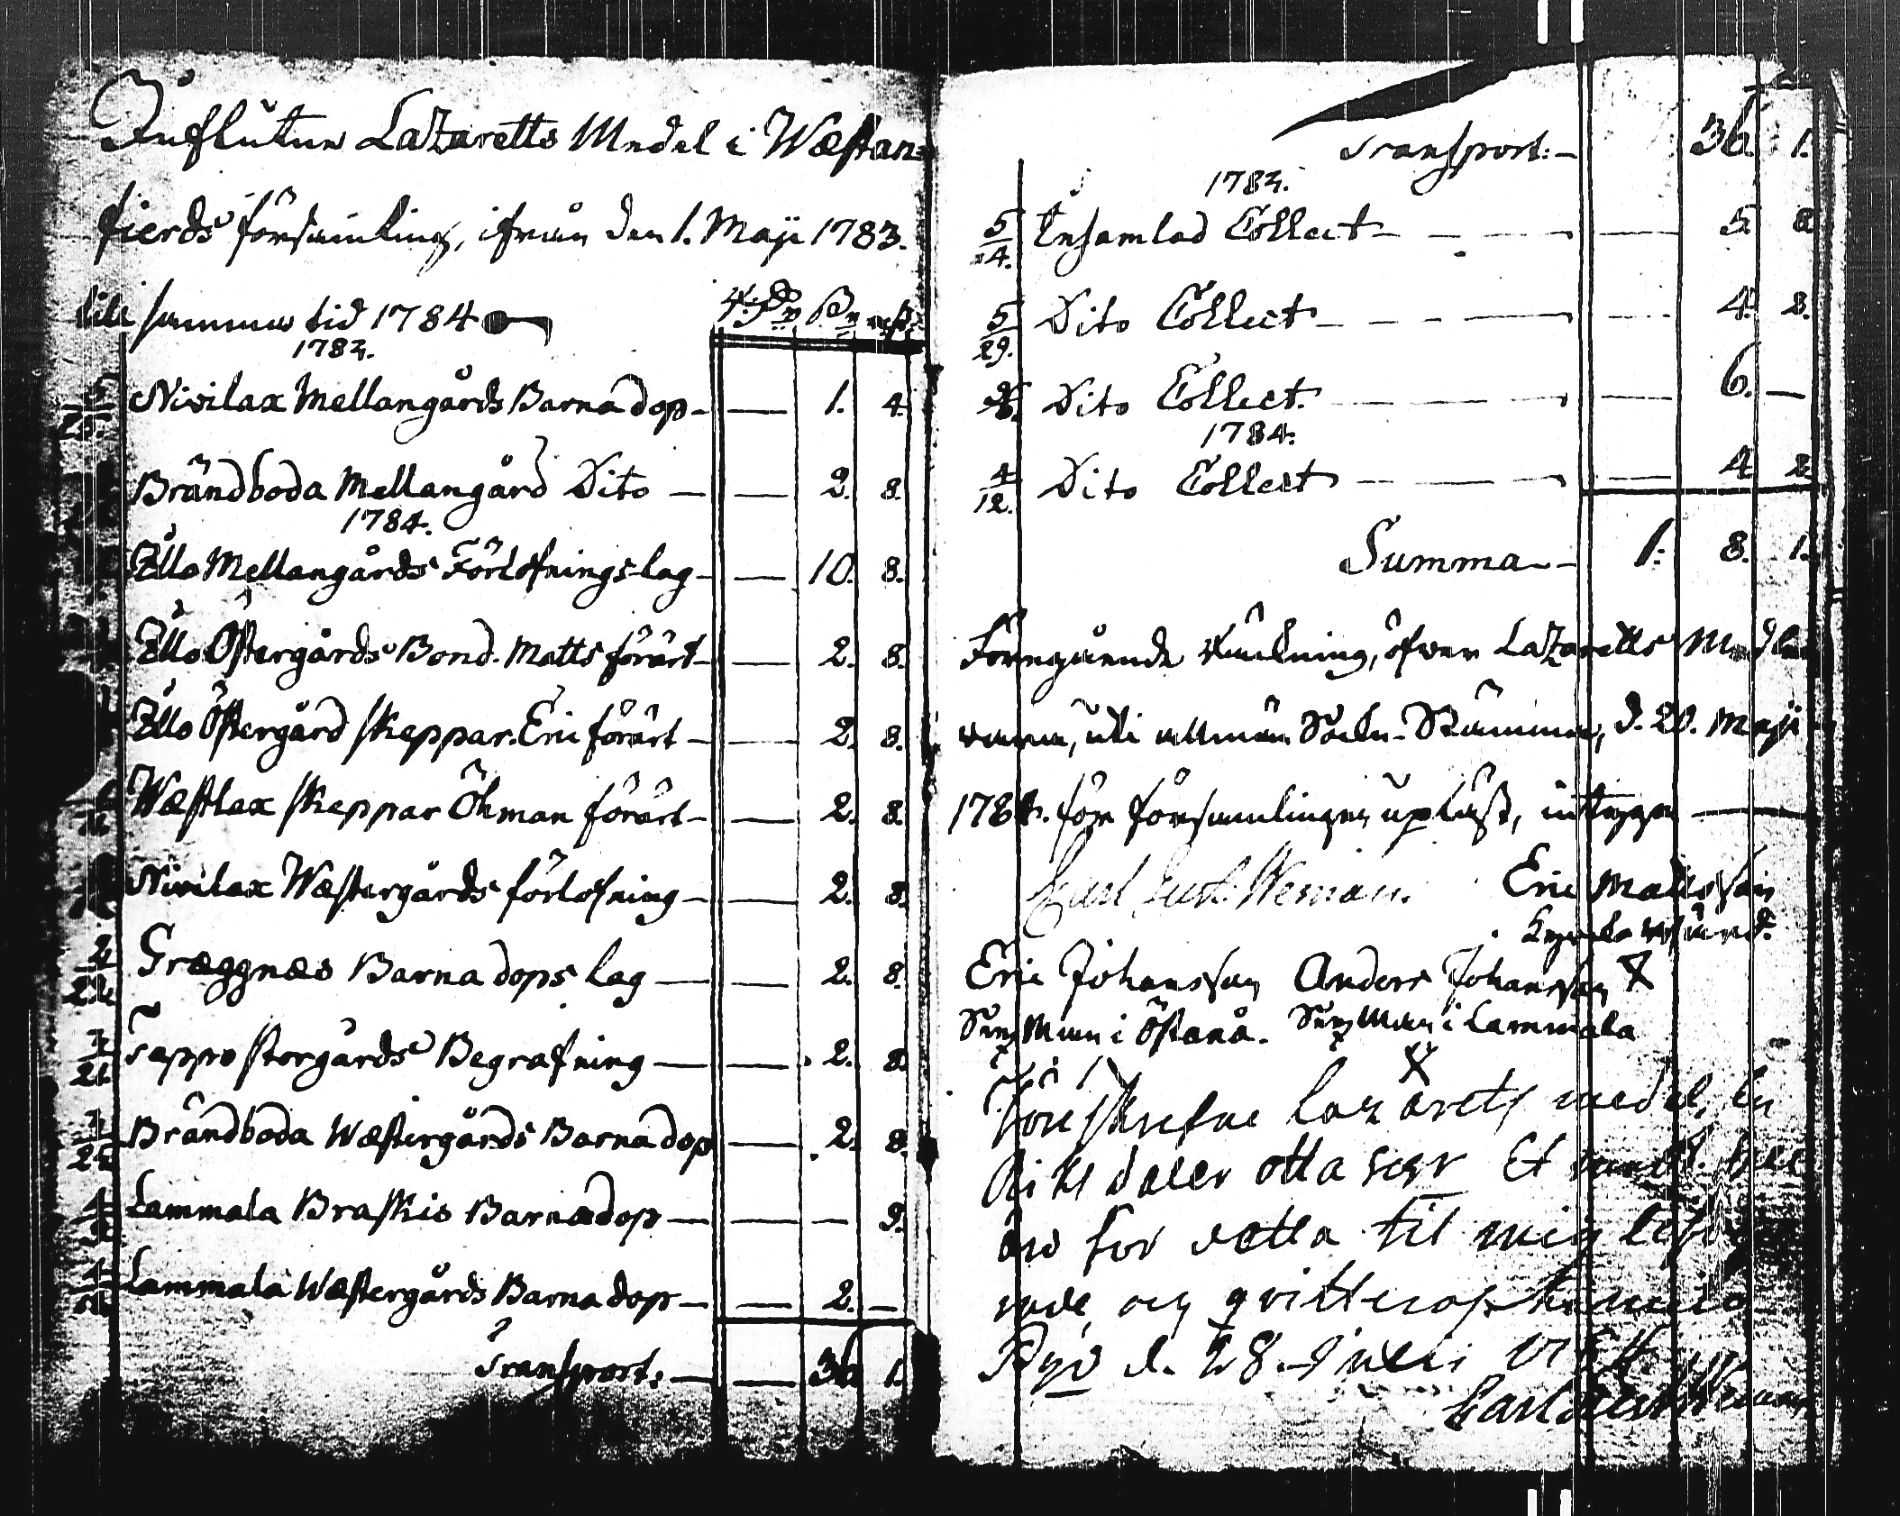 Influtne Lazaretts Medel i Wæstan=
fierds församling, ifrån den 1. Maji 1783.
till samma tid 1784
1783.
5 Nivilax Mellangårds Barnadop - — 1. 4.
Brändboda Mellangård Dito — — 2. 8.
1784.
Illo Mellangårds Förlofningslag - — 10. 8.
Illo Östergårds Bond. Matts förärt - — 2. 8.
Illo Östergård skeppar. Eric förärt - — 2. 8.
Wæstlax skeppar Öhman förärt - — 2. 8.
Nivilax Wæstergårds förlofning - — 2. 8.
Græggnæs Barnadops lag — — 2. 8.
Tappo storgårds Begrafning — — 2. 8.
Brändboda Wæstergårds Barnadop — 2. 8.
Lammala Braskis Barnadop — — — 9.
Lammala Wæstergårds Barnadop — — 2. —
Transport. — — 36. 1.
Transport: — 36. 1.
1783.
5/4. Insamlad Collect — — 5. 8
5/29. Dito Collect — — 4. 8.
Dito Collect. — — 6. —
1784.
4/12. Dito Collect — — 4 2
Summa — 1. 8. 1.
Föregående Räkning, öfver Lazaretts Medlen
vara, uti allmän Sockn-Stämma, d. 20. Maji
1784. för församlingen upläst, intygga
Carl Gust. Weman. Eric Mattsson
Kyrcko Wärd.
Eric Johansson Anders Johansson X
Sexman i Östanå. Sexman i Lammala
X
Föreskrefne lazaretts medel, En
Riksdaler otta sk Et
äro for detta til mig lefve
rade, och qvitteras
d. 28. Junii 1784.
Carl Gust Weman